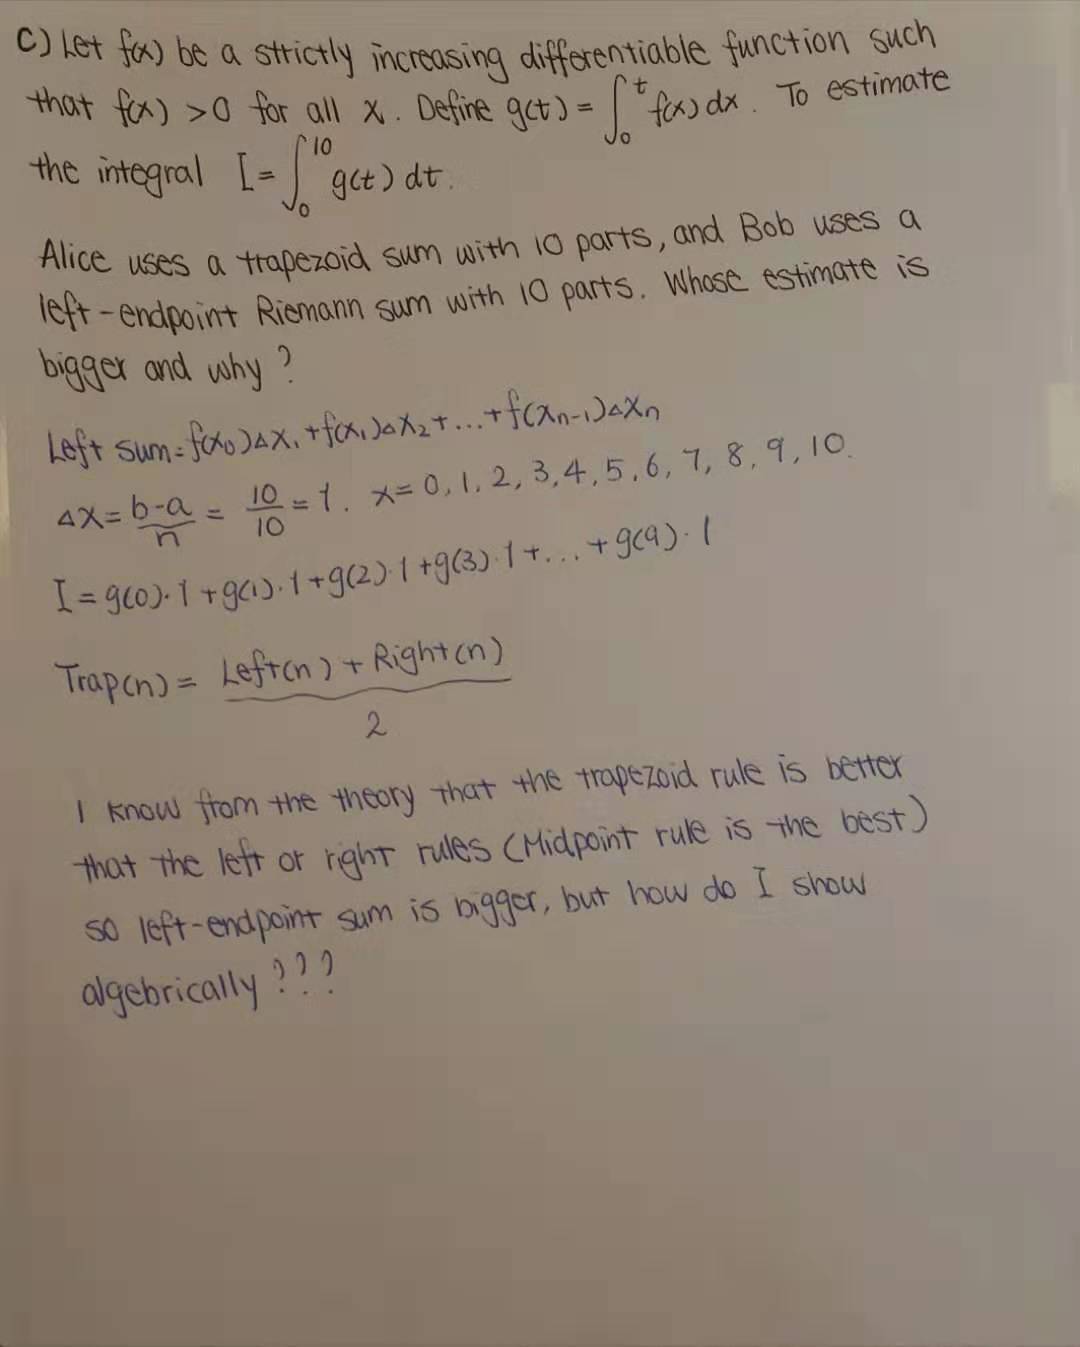 C) Let f(x) be a strictly increasing differentiable function such
that f(x) >0 for all x. Define g(t) = ∫₀ᵗ f(x) dx. To estimate
the integral I = ∫₀¹⁰ g(t) dt.
Alice uses a trapezoid sum with 10 parts, and Bob uses a
left-endpoint Riemann sum with 10 parts. Whose estimate is
bigger and why?
Left sum = f(x₀)△x₁ + f(x₁)△x₂ + ... + f(xₙ₋₁)△xₙ
△x = b-a/n = 10/10 = 1. x = 0, 1, 2, 3, 4, 5, 6, 7, 8, 9, 10.
I = g(0)·1 + g(1)·1 + g(2)·1 + g(3)·1 + ... + g(9)·1
Trap(n) = Left(n) + Right(n) / 2
I know from the theory that the trapezoid rule is better
that the left or right rules (Midpoint rule is the best)
so left-endpoint sum is bigger, but how do I show
algebrically???